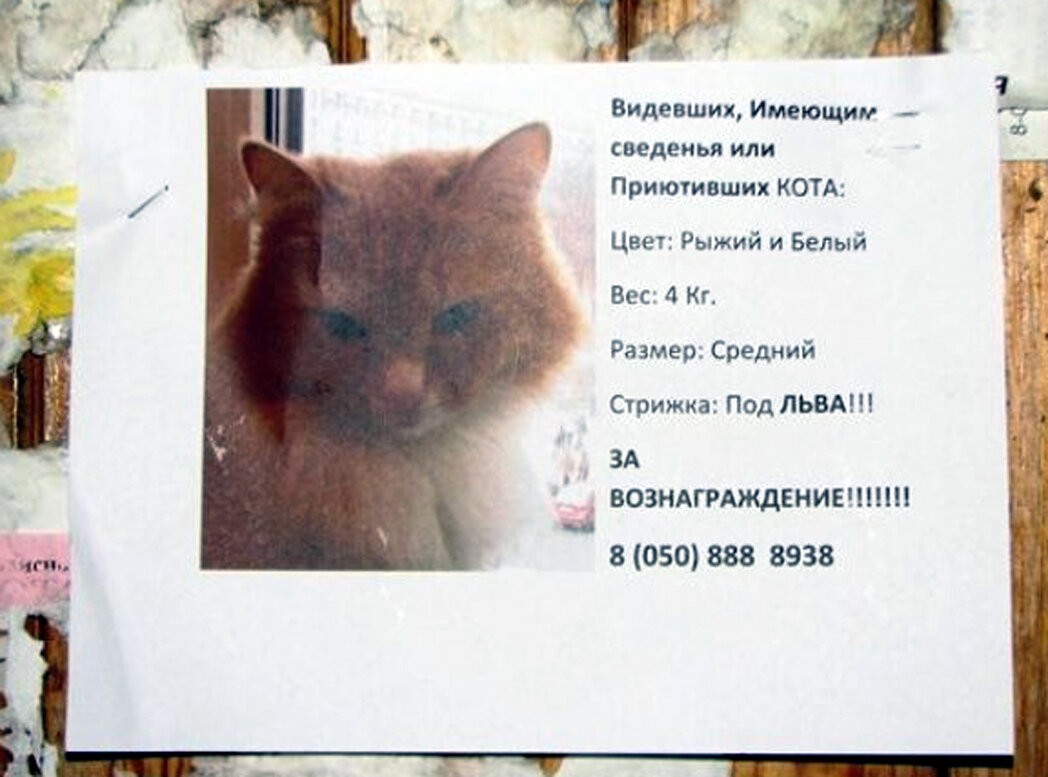 Видевших, Имеющим
сведенья или
Приютивших КОТА:
Цвет: Рыжий и Белый
Вес: 4 Кг.
Размер: Средний
Стрижка: Под ЛЬВА!!!
ЗА
ВОЗНАГРАЖДЕНИЕ!!!!!!!
8 (050) 888 8938